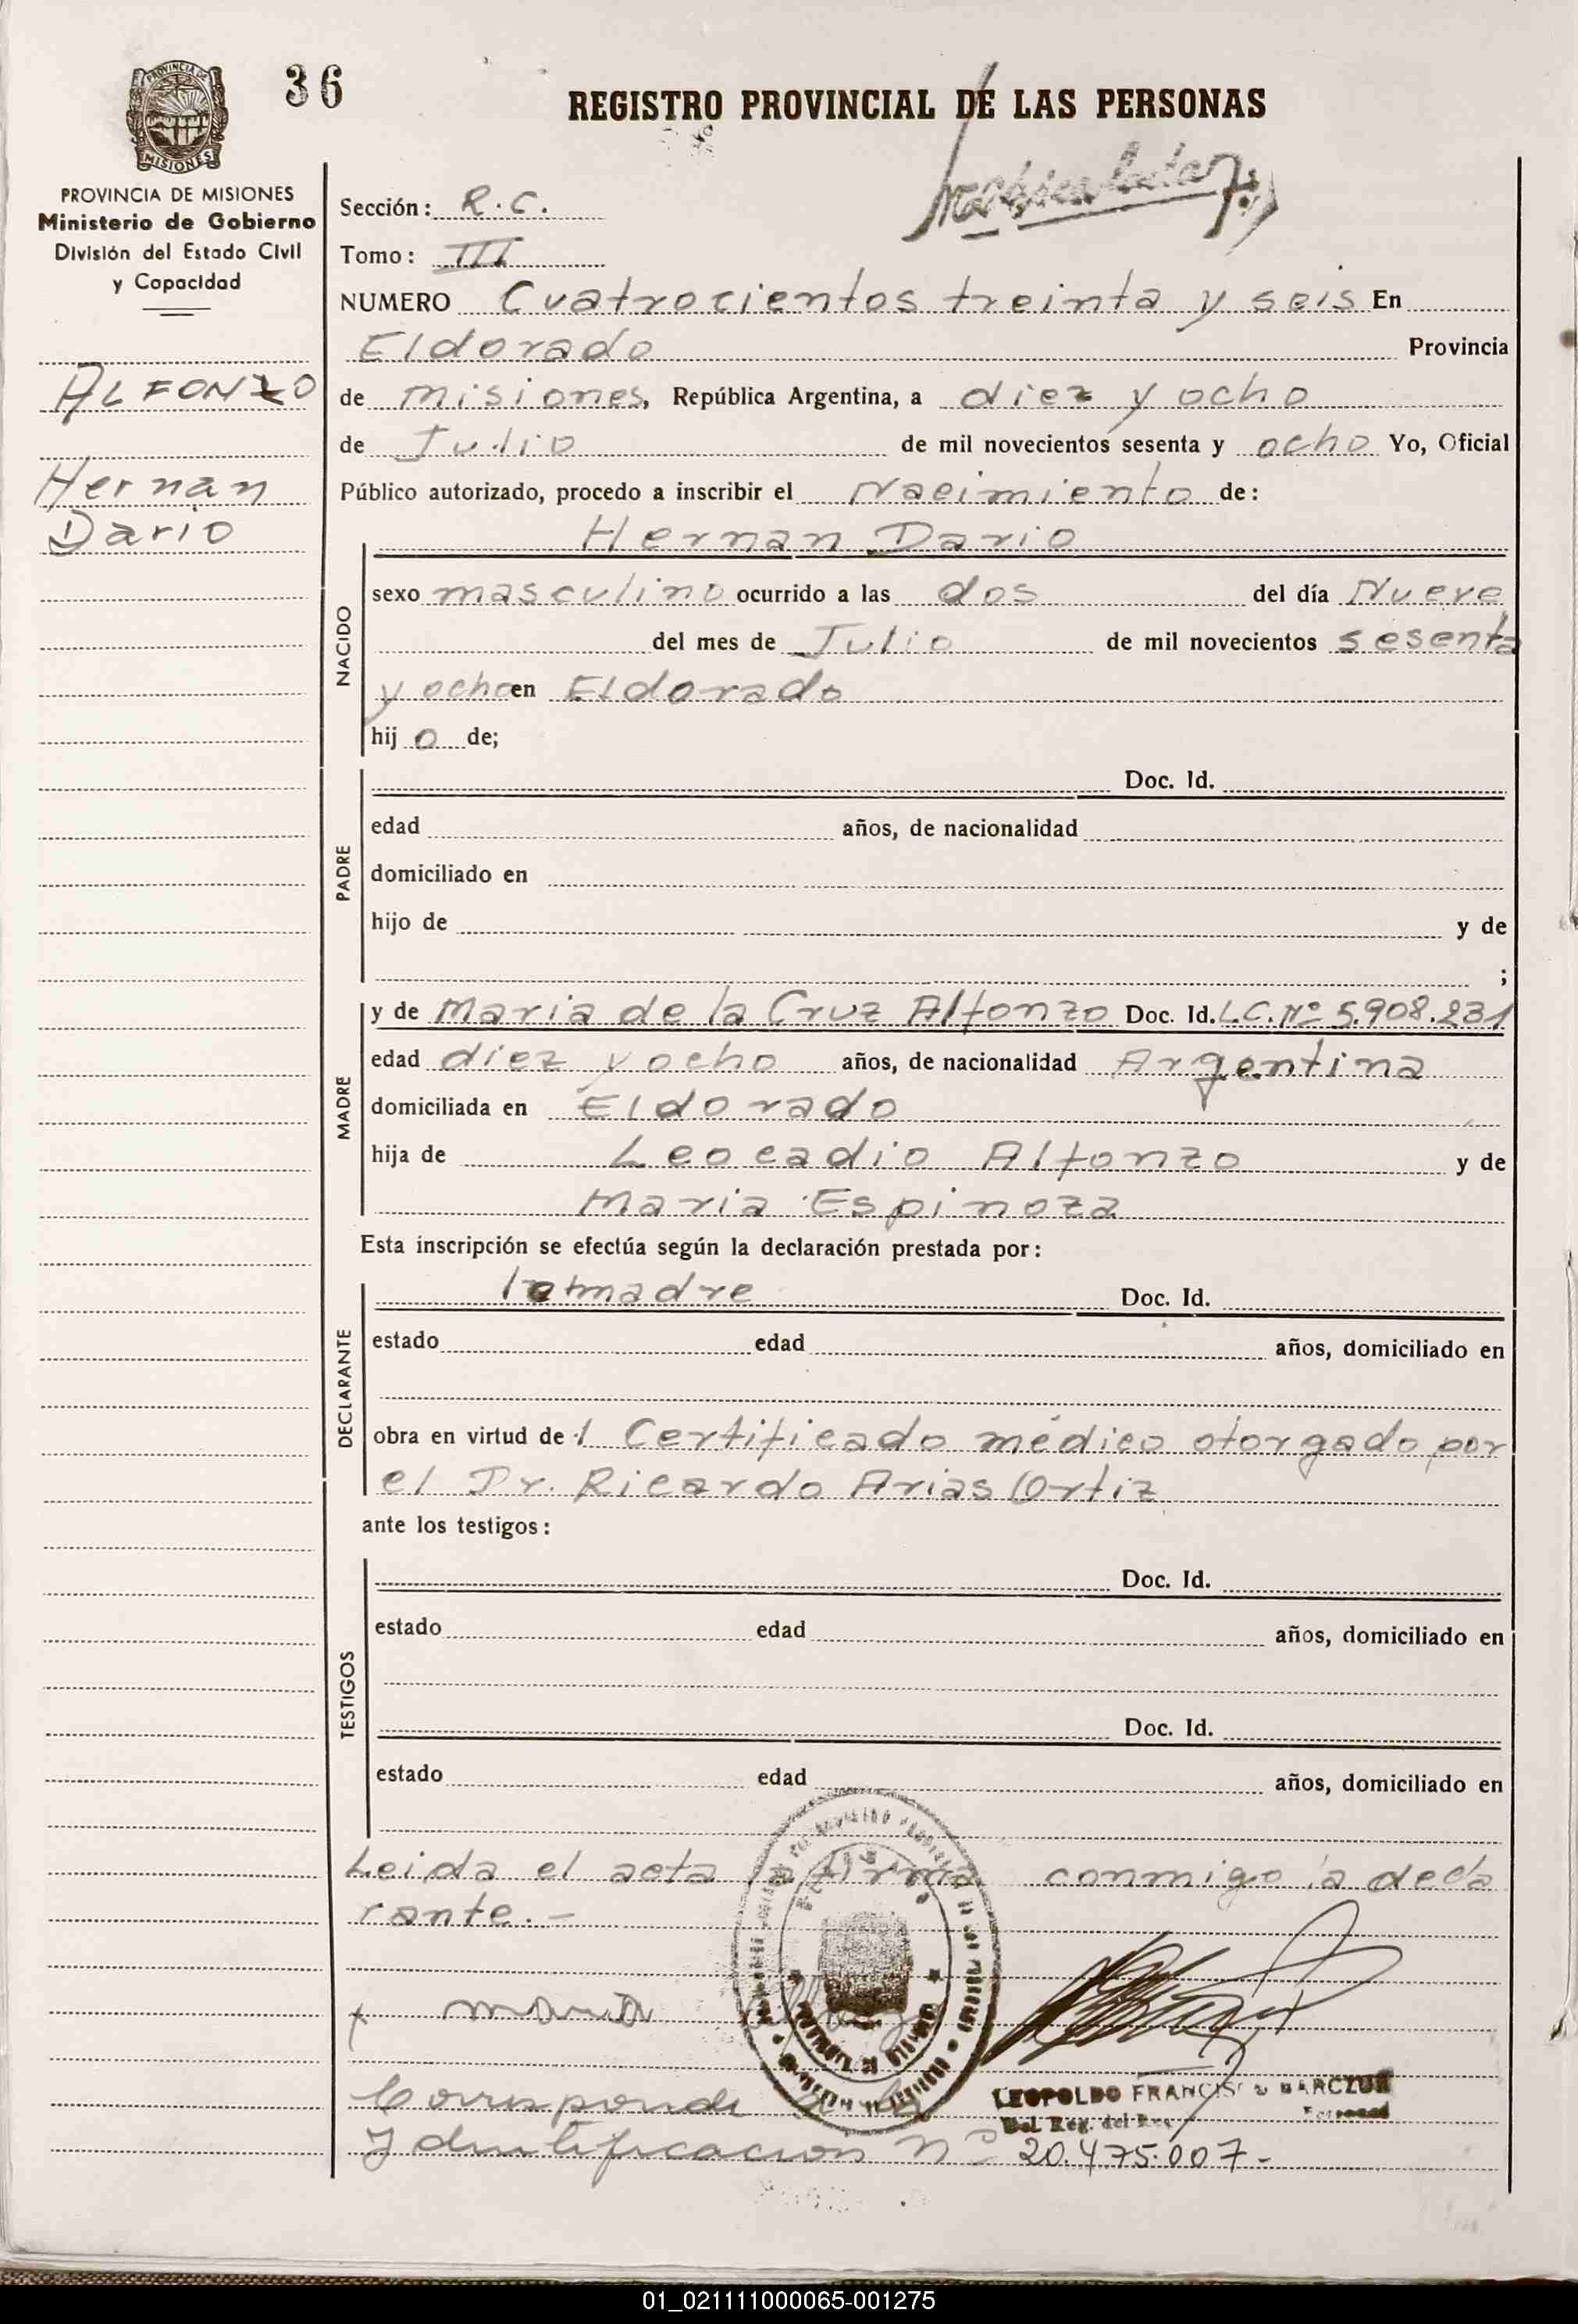 36
REGISTRO PROVINCIAL DE LAS PERSONAS
PROVINCIA DE
MISIONES
PROVINCIA DE MISIONES
Ministerio de Gobierno
División del Estado Civil
y Capacidad
ALFONZO
Hernan
Dario
Sección: R.C.
Tomo: III
NUMERO Cuatrocientos treinta y seis En
Eldorado Provincia
de misiones, República Argentina, a diez y ocho
de Julio de mil novecientos sesenta y ocho Yo, Oficial
Público autorizado, procedo a inscribir el Nacimiento de:
Hernan Dario
NACIDO
sexo masculino ocurrido a las dos del día Nueve
del mes de Julio de mil novecientos sesenta
y ocho en Eldorado
hij o de;
PADRE
Doc. Id.
edad años, de nacionalidad
domiciliado en
hijo de y de
;
MADRE
y de Maria de la Cruz Alfonzo Doc. Id. L.C. Nº 5.908.231
edad diez y ocho años, de nacionalidad Argentina
domiciliada en Eldorado
hija de Leocadio Alfonzo y de
Maria Espinoza
Esta inscripción se efectúa según la declaración prestada por:
DECLARANTE
la madre Doc. Id.
estado edad años, domiciliado en
obra en virtud de l Certificado médico otorgado por
el Dr. Ricardo Arias Ortiz
ante los testigos:
TESTIGOS
Doc. Id.
estado edad años, domiciliado en
Doc. Id.
estado edad años, domiciliado en
Leida el acta la firma conmigo la decla
rante.-
x maria
LEOPOLDO FRANCISCO BARCZUK
Del. Reg. del
Corresponde
Ydentificacion nº 20.475.007-
01_021111000065-001275